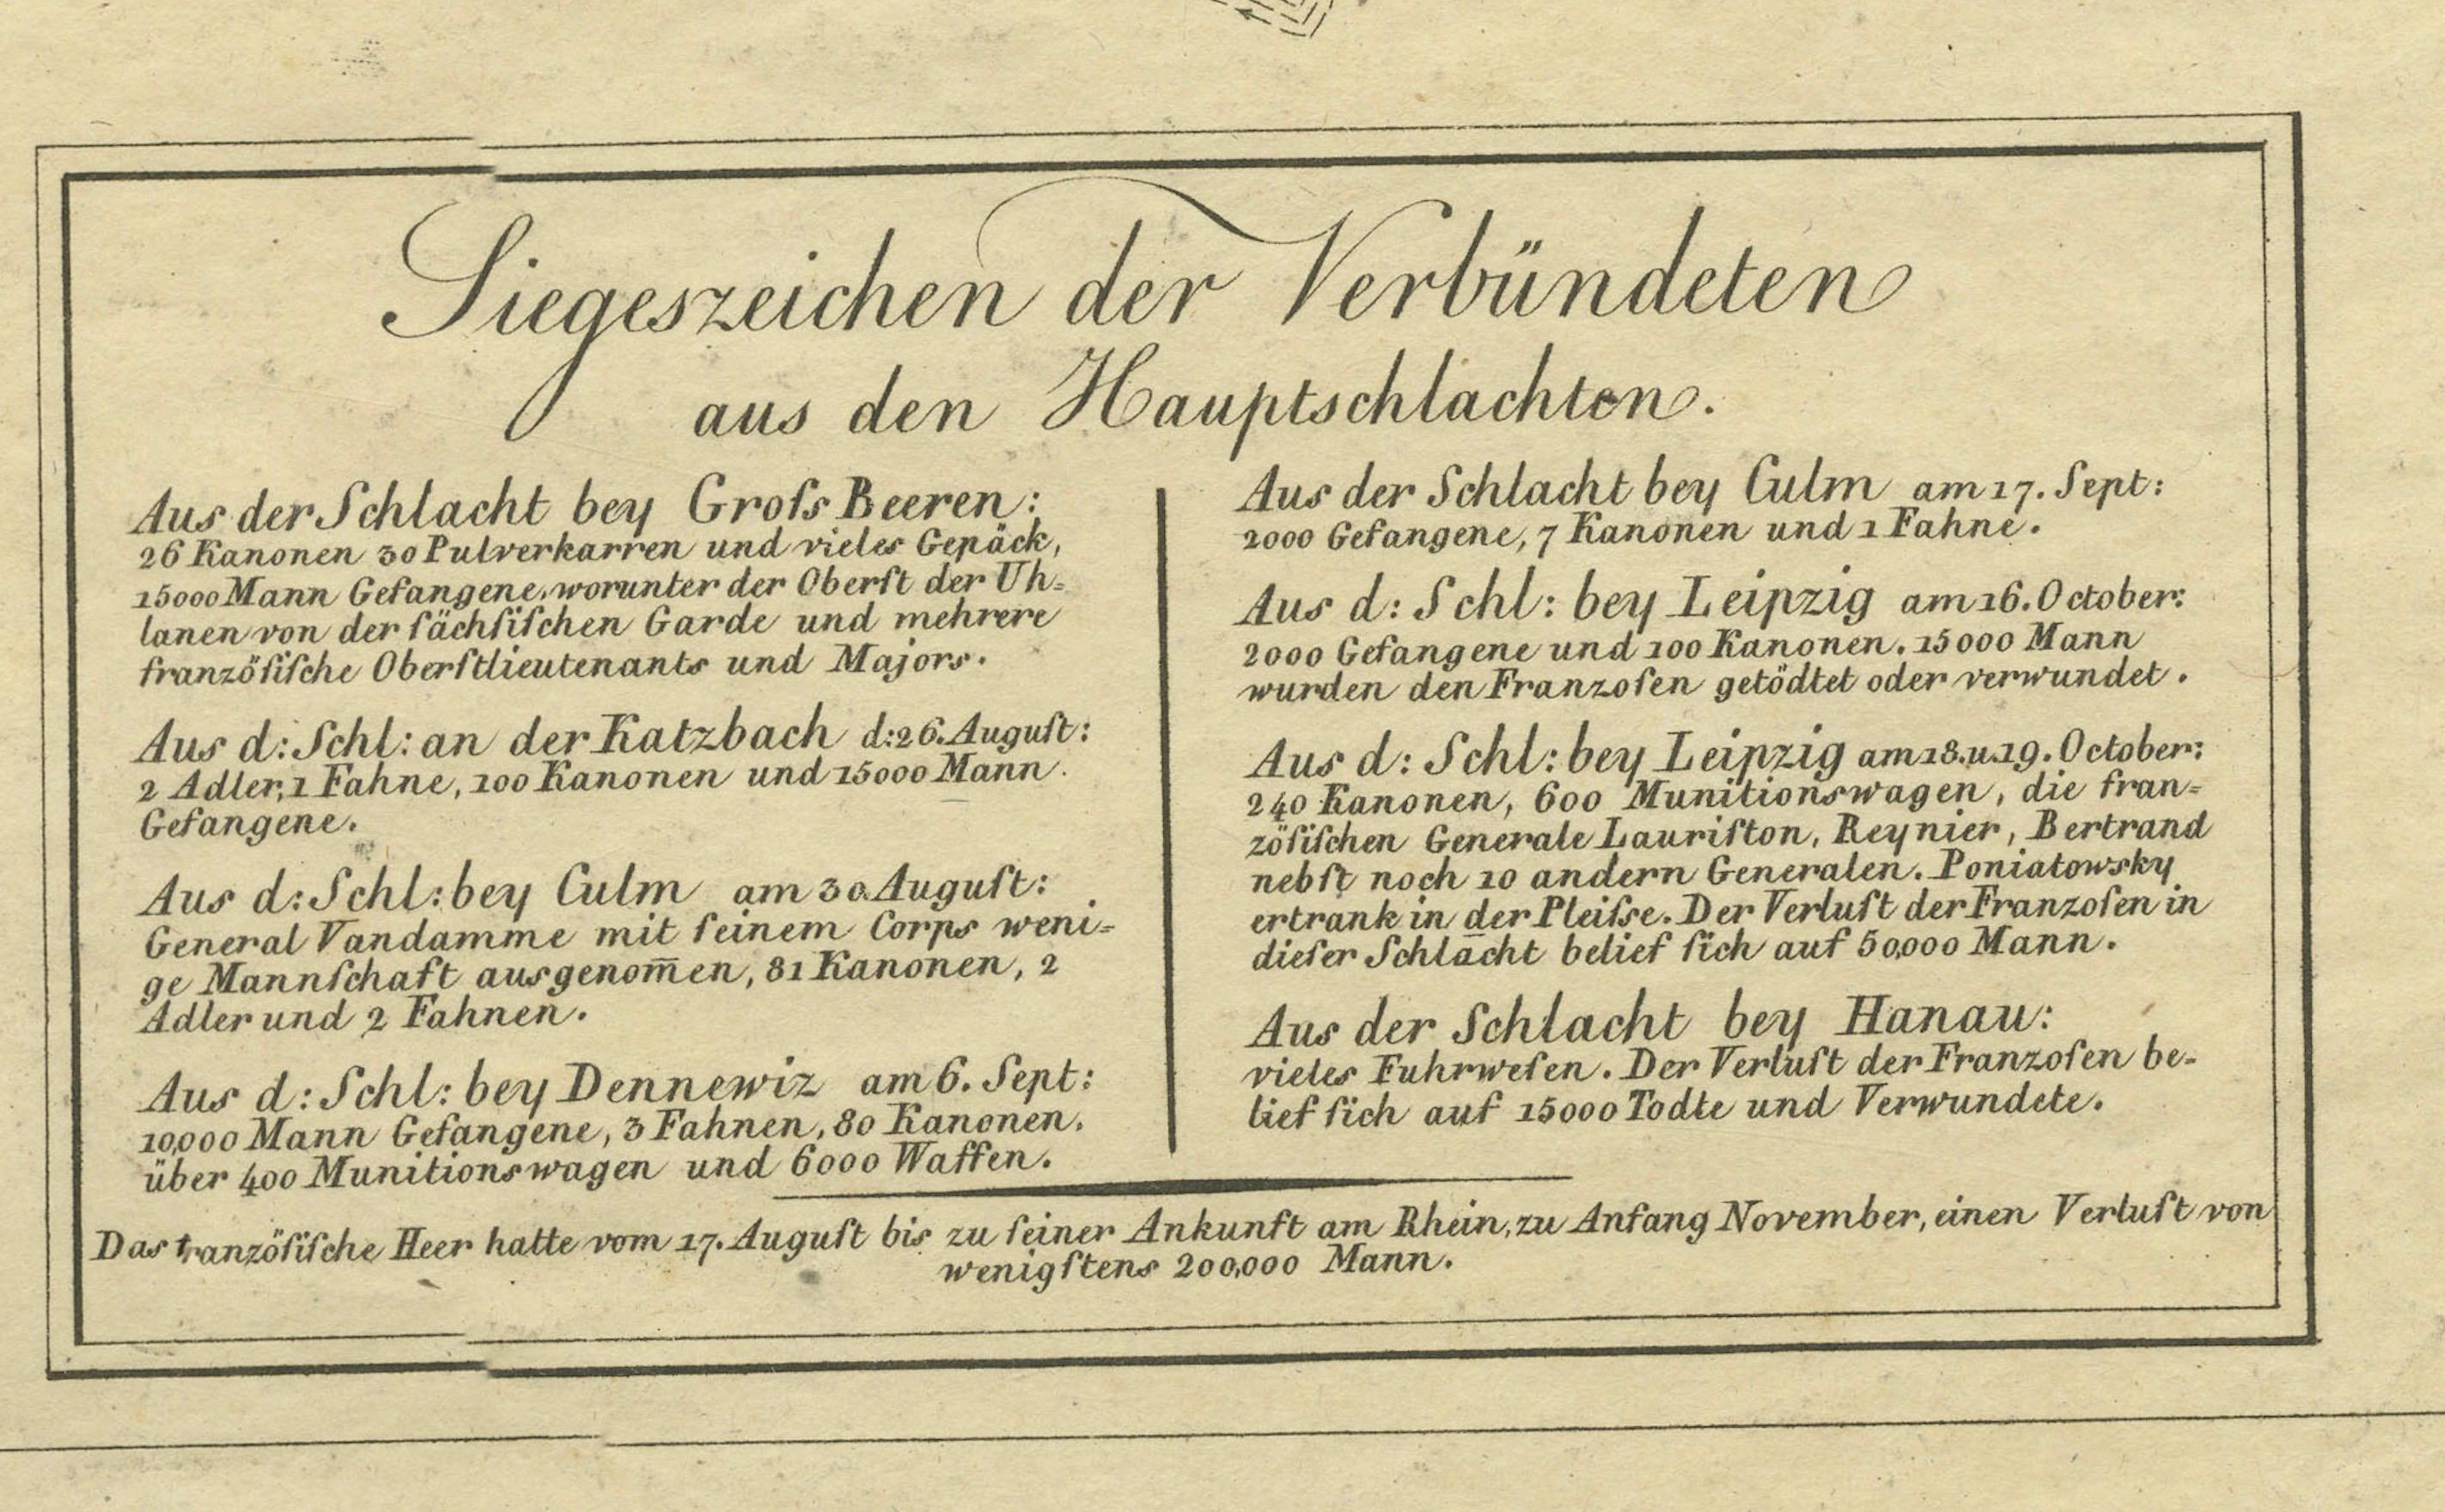 Siegeszeichen der Verbündeten
aus den Hauptschlachten.
Aus der Schlacht bey Groſs Beeren:
26 Kanonen 30 Pulverkarren und vieles Gepäck,
15000 Mann Gefangene, worunter der Oberſt der Uh=
lanen von der ſächſiſchen Garde und mehrere
franzöſiſche Oberſtlieutenants und Majors.
Aus d: Schl: an der Katzbach d: 26. Auguſt:
2 Adler, 1 Fahne, 100 Kanonen und 15000 Mann
Gefangene.
Aus d: Schl: bey Culm am 30. Auguſt:
General Vandamme mit ſeinem Corps weni=
ge Mannſchaft ausgenom̄en, 81 Kanonen, 2
Adler und 2 Fahnen.
Aus d: Schl: bey Dennewiz am 6. Sept:
10,000 Mann Gefangene, 3 Fahnen, 80 Kanonen,
über 400 Munitionswagen und 6000 Waffen.
Aus der Schlacht bey Culm am 17. Sept:
2000 Gefangene, 7 Kanonen und 1 Fahne.
Aus d: Schl: bey Leipzig am 16. October:
2000 Gefangene und 100 Kanonen. 15000 Mann
wurden den Franzoſen getödtet oder verwundet.
Aus d: Schl: bey Leipzig am 18. u. 19. October:
240 Kanonen, 600 Munitionswagen, die fran=
zöſiſchen Generale Lauriſton, Reynier, Bertrand
nebſt noch 10 andern Generalen. Poniatowsky
ertrank in der Pleiſse. Der Verluſt der Franzoſen in
dieſer Schlacht belief ſich auf 50,000 Mann.
Aus der Schlacht bey Hanau:
vieles Fuhrweſen. Der Verluſt der Franzoſen be-
lief ſich auf 15000 Todte und Verwundete.
Das franzöſiſche Heer hatte vom 17. Auguſt bis zu ſeiner Ankunft am Rhein, zu Anfang November, einen Verluſt von
wenigſtens 200,000 Mann.